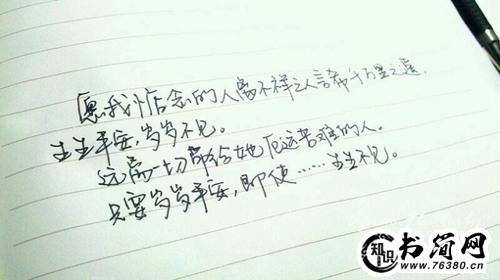 愿我惦念的人离不祥之人言希十万里之遥.
生生平安,岁岁不见。
远离一切带给她厄运苦难的人。
只要岁岁平安,即使……生生不见。
知识
书简网
www.76380.cn